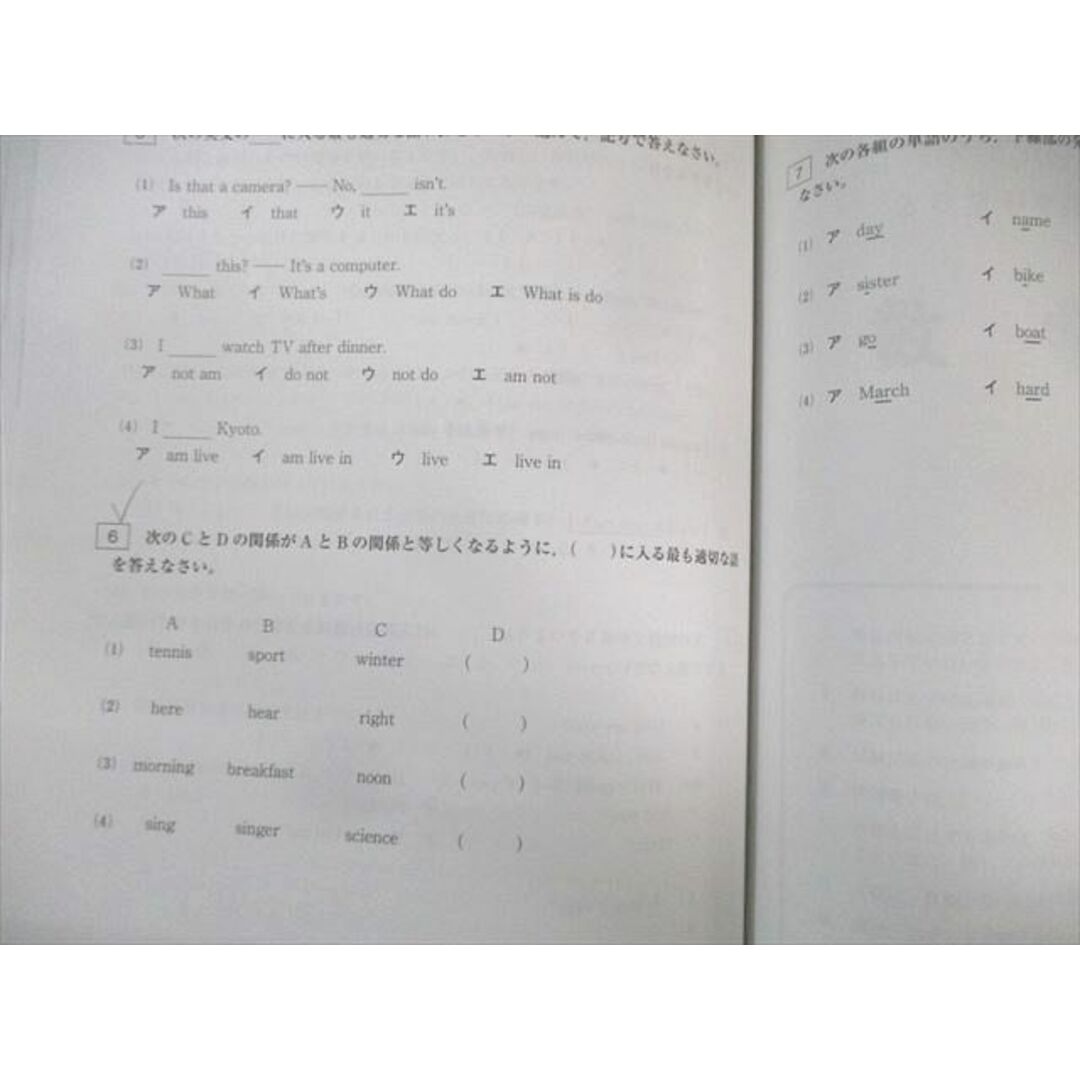 で答えなさい。
(1) Is that a camera? — No, ______ isn't.
ア this イ that ウ it エ it's
(2) ______ this? — It's a computer.
ア What イ What's ウ What do エ What is do
(3) I ______ watch TV after dinner.
ア not am イ do not ウ not do エ am not
(4) I ______ Kyoto.
ア am live イ am live in ウ live エ live in
6 次のCとDの関係がAとBの関係と等しくなるように，( )に入る最も適切な語
を答えなさい。
A B C D
(1) tennis sport winter ( )
(2) here hear right ( )
(3) morning breakfast noon ( )
(4) sing singer science ( )
7 次の各組の単語のうち，下線部の発
なさい。
(1) ア day イ name
(2) ア sister イ bike
(3) ア go イ boat
(4) ア March イ hard